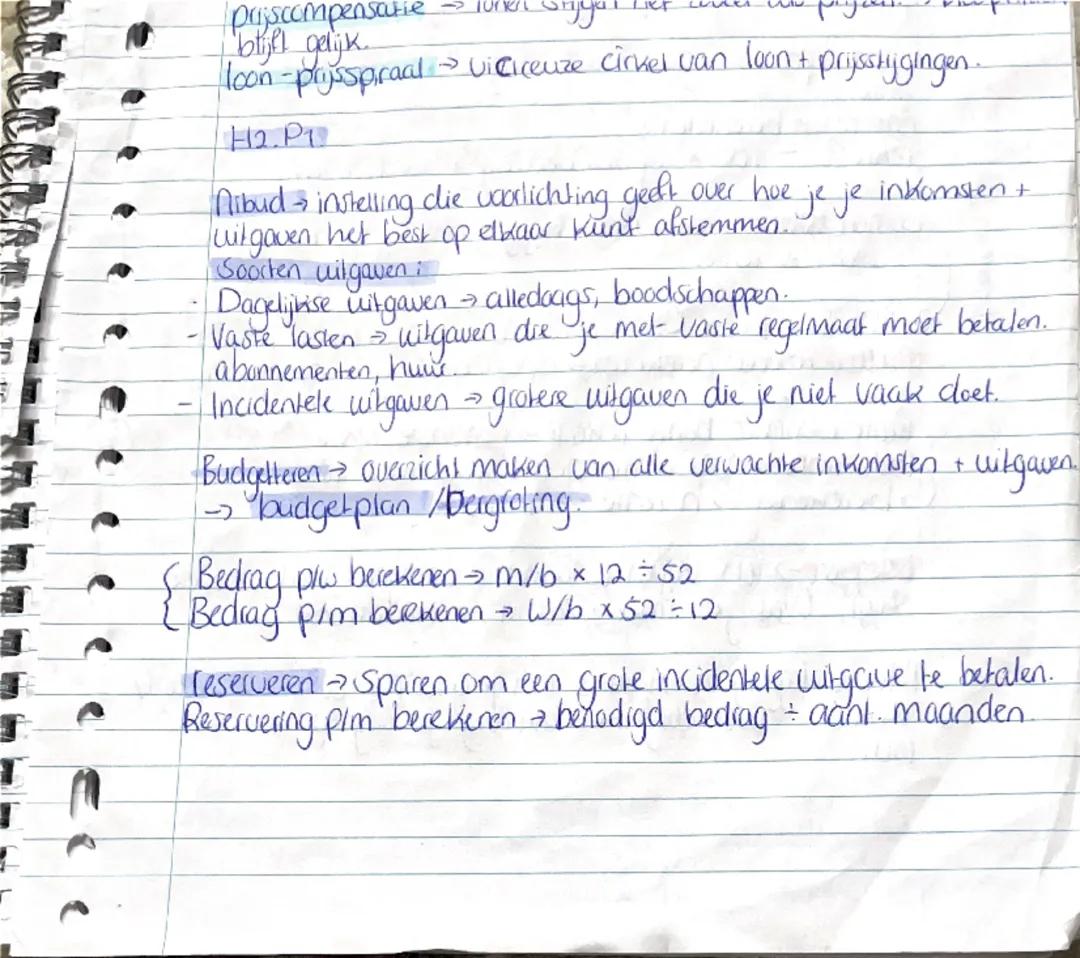 prijscompensatie → lonen stijgen net
blijft gelijk.
loon-prijsspiraal → vicieuze cirkel van loon + prijsstijgingen.
H2.P1
Nibud → instelling die voorlichting geeft over hoe je je inkomsten +
uitgaven het best op elkaar kunt afstemmen.
Soorten uitgaven:
- Dagelijkse uitgaven → alledaags, boodschappen.
- Vaste lasten → uitgaven die je met vaste regelmaat moet betalen.
abonnementen, huur.
- Incidentele uitgaven → grotere uitgaven die je niet vaak doet.
Budgetteren → overzicht maken van alle verwachte inkomsten + uitgaven.
→ budgetplan / bergroting.
Bedrag p/w berekenen → m/b × 12 ÷ 52
Bedrag p/m berekenen → w/b × 52 ÷ 12
reserveren → sparen om een grote incidentele uitgave te betalen.
Reservering p/m berekenen → benodigd bedrag ÷ aant. maanden